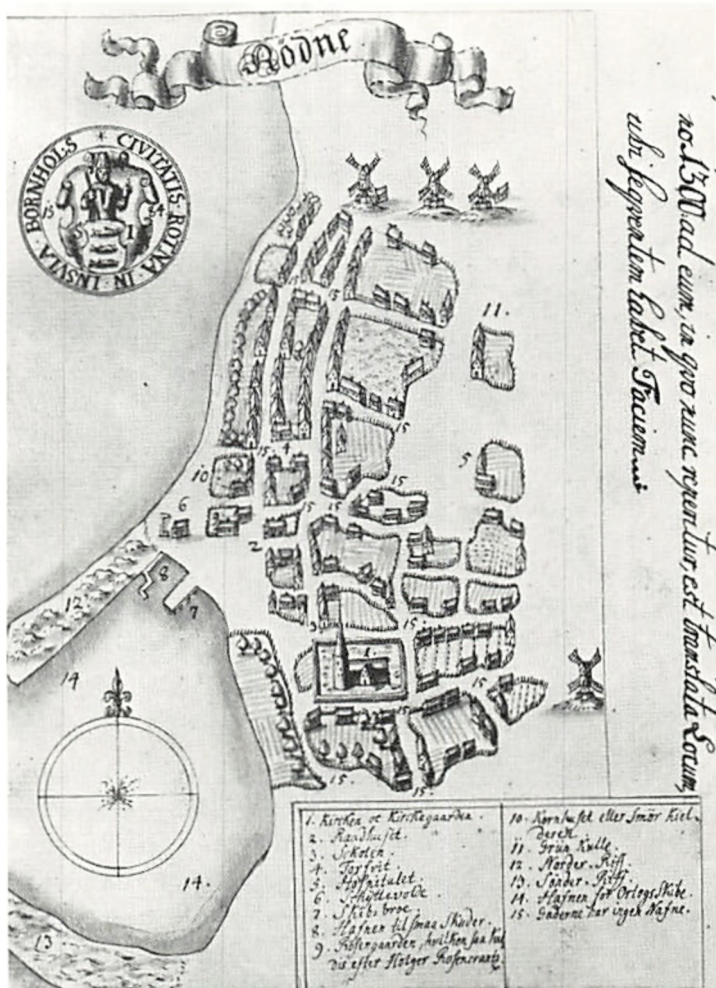 Rödne
CIVITATIS ROTNA IN INSVLA BORNHOLS
15 54
S I
no 1300. ad eum, in qvo nunc reperitur, est translata Locum,
ubi seqventem habet Faciem
11.
15
15
15.
4
15
10
5
6
15
15
15
2
8
12
7
3
15.
1.
14
15
15
15.
15.
14.
13
1. Kircken oc Kirckegaarden.
2. Raadhuset.
3. Scholen.
4. Torfvit.
5. Hospitalet.
6. Schyttevolde
7. Skibs broe
8. Hafnen til smaa Skuder.
9. Rosengaarden, hvilken saa
dis efter Holger Rosencrantz.
10. Kornhuset eller Smör Kiel-
deren
11. Grün Kulle.
12. Norder-Riff.
13. Sönder-Riff.
14. Hafnen for Orlogs Skibe.
15. Gaderne har ingen Nafne.